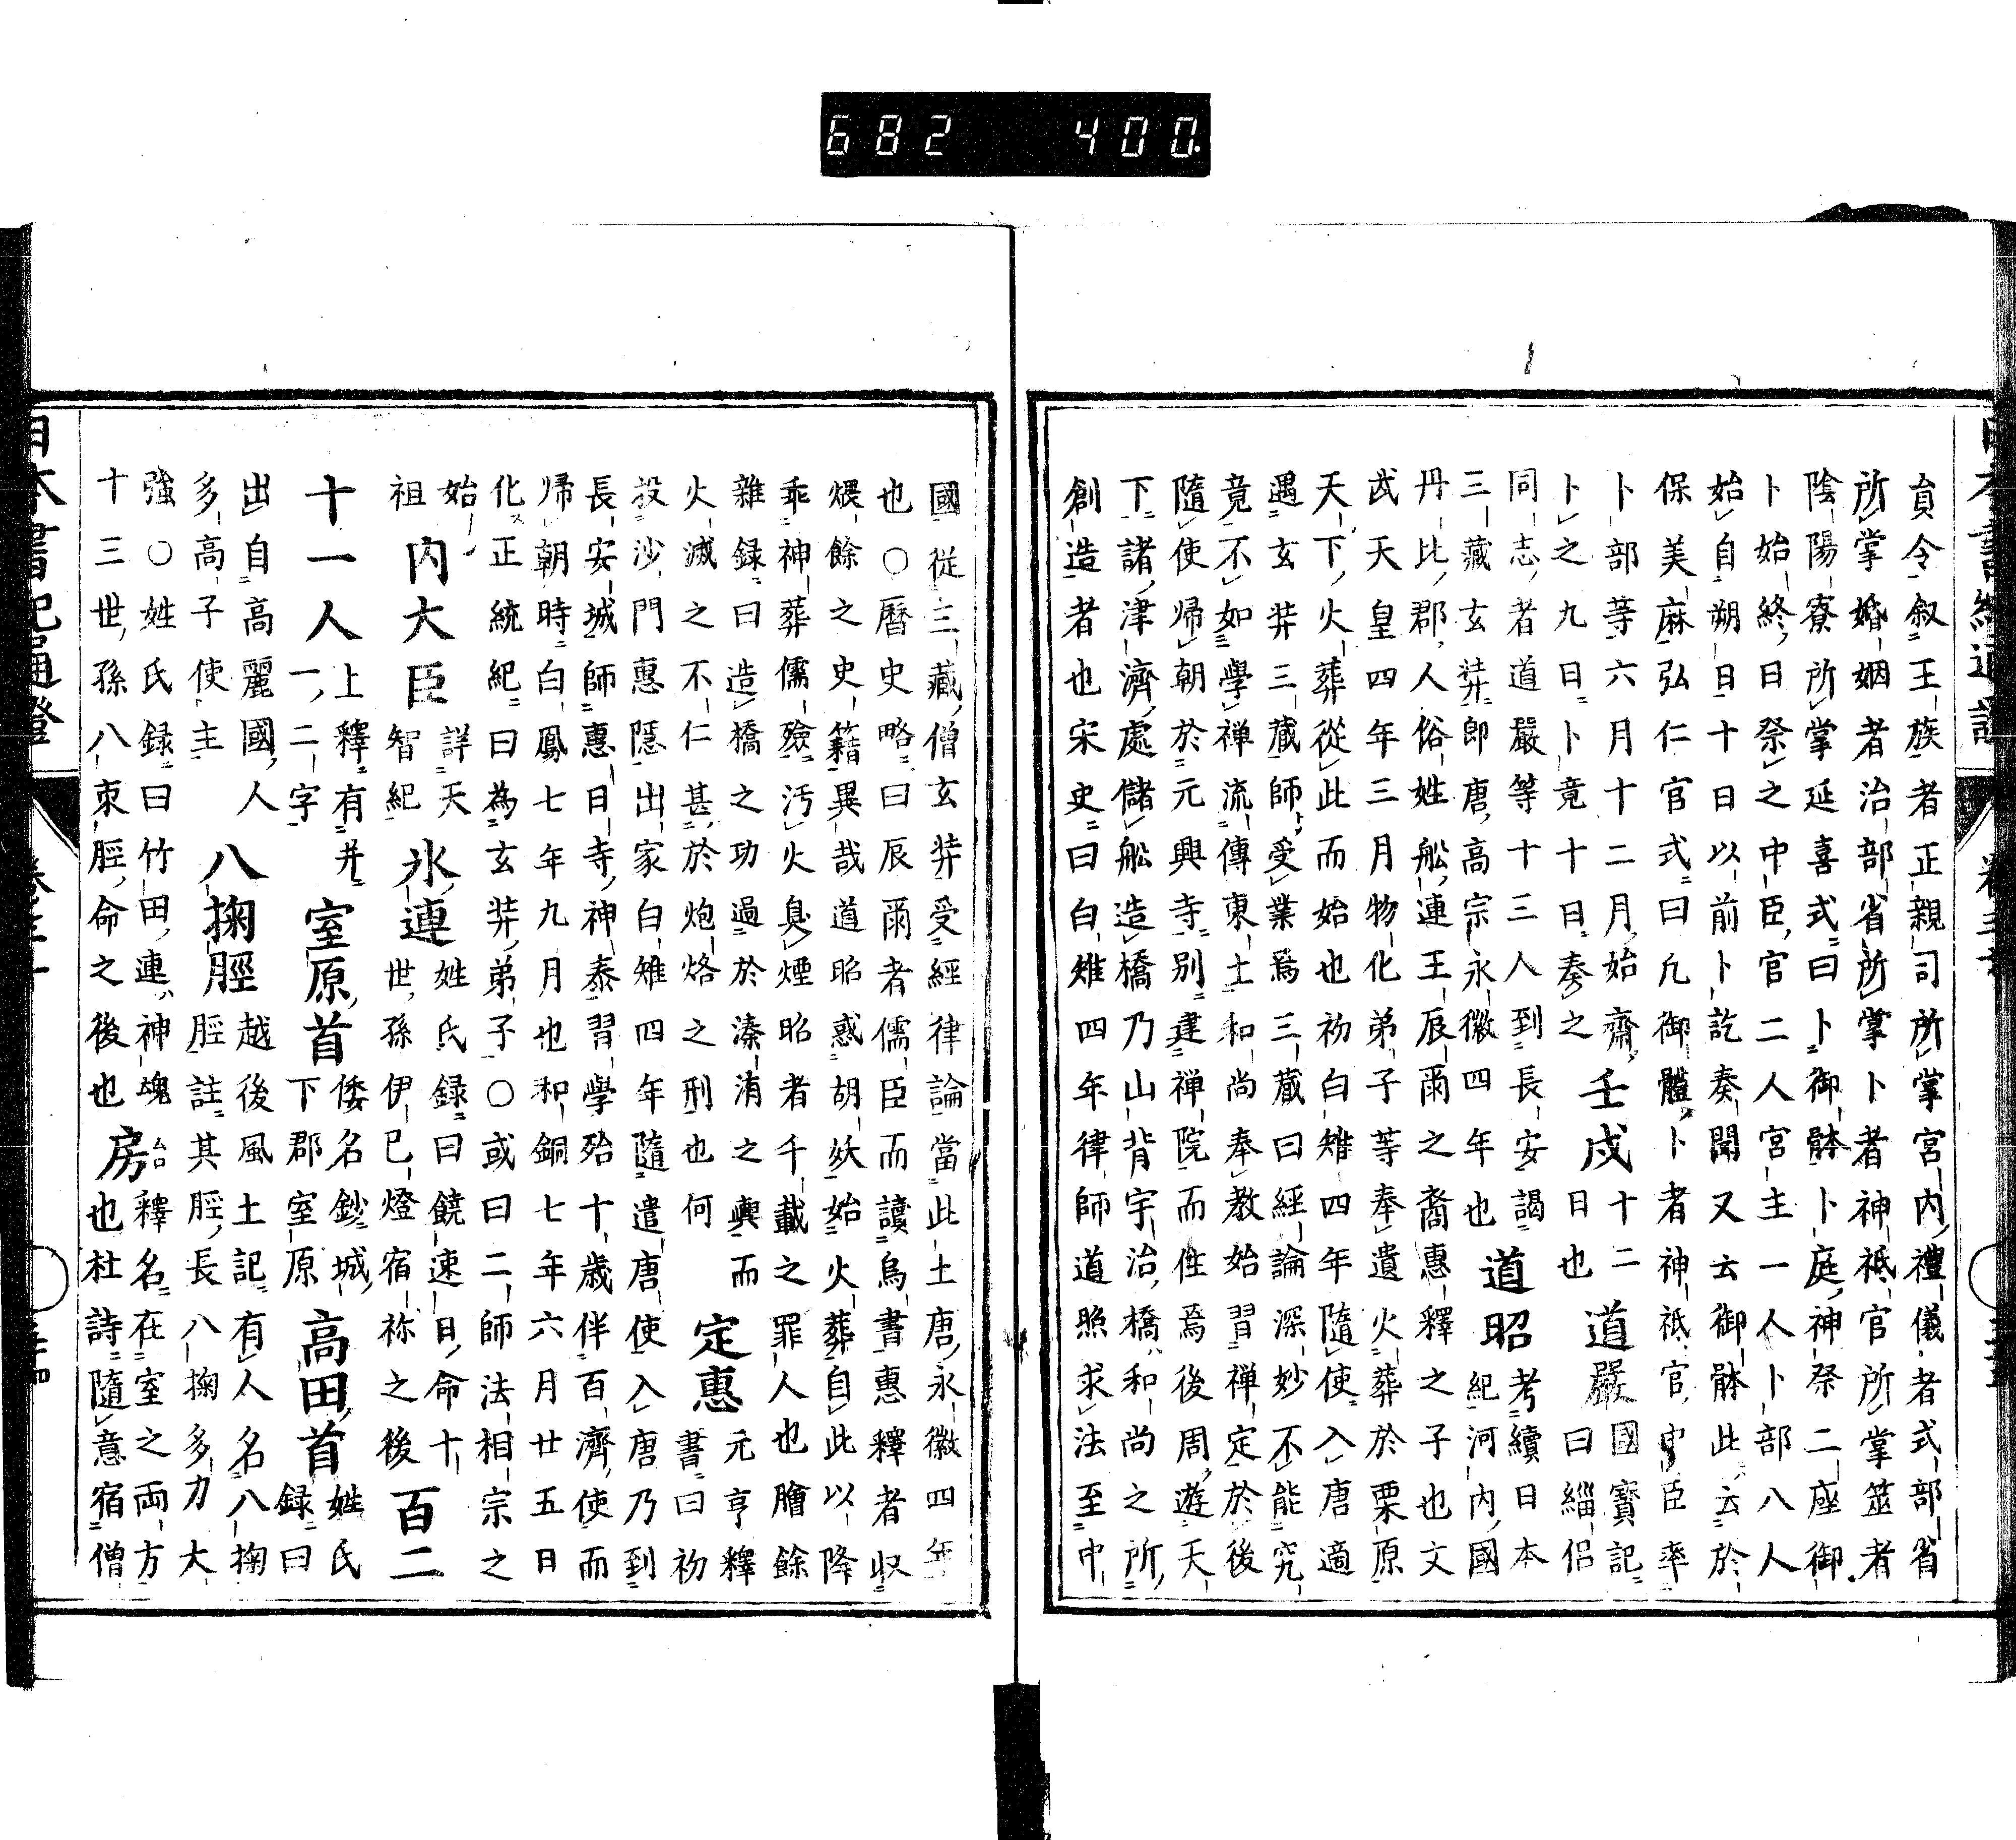 682 400
貟令叙王族者正親司所掌宮内禮儀者式部省
所掌婚姻者治部省所掌卜者神祇官所掌筮者
陰陽寮所掌延喜式曰卜御躰卜庭神祭二座御
卜始終日祭之中臣官二人宮主一人卜部八人
始自朔日十日以前卜訖奏聞又云御躰此云於
保美麻弘仁官式曰凢御體卜者神祇官中臣率
卜部等六月十二月始齋 壬戌 十二
卜之九日卜竟十日奏之 日也 道嚴 國寳記
曰緇侶
同志者道嚴等十三人到長安謁 道昭 考續日本
三藏玄弉即唐高宗永徽四年也 紀河内國
丹比郡人俗姓舩連王辰爾之裔惠釋之子也文
武天皇四年三月物化弟子等奉遺火葬於栗原
天下火葬從此而始也初白雉四年隨使入唐適
遇玄弉三藏師受業焉三藏曰經論深妙不能究
竟不如學禅流傳東土和尚奉教始習禅定於後
隨使帰朝於元興寺別建禅院而住焉後周遊天
下諸津濟處儲舩造橋乃山背宇治橋和尚之所
創造者也宋史曰白雉四年律師道照求法至中
國從三藏僧玄弉受經律論當此土唐永徽四年
也○暦史略曰辰爾者儒臣而讀烏書惠釋者収
煨餘之史籍異哉道昭惑胡妖始火葬自此以降
乖神葬儒殮汚火臭煙昭者千載之罪人也膾餘
雜録曰造橋之功過於溱洧之輿而
火滅之不仁甚於炮烙之刑也何 定惠 元亨釋
書曰初
投沙門惠隱出家白雉四年隨遣唐使入唐乃到
長安城師惠日寺神泰習學殆十歳伴百濟使而
帰朝時白鳳七年九月也和銅七年六月廿五日
化正統紀曰為玄弉弟子○或曰二師法相宗之
始
祖 内大臣 詳天
智紀 氷連 姓氏録曰饒速日命十
世孫伊己燈宿祢之後 百二
十一人 上釋有并
一二字 室原首 倭名鈔城
下郡室原 高田首 姓氏
録曰
出自高麗國人
多高子使主 八掬脛 越後風土記有人名八掬
脛註其脛長八掬多力大
強○姓氏録曰竹田連神魂
十三世孫八束脛命之後也 房 釋名在室之両方
也杜詩隨意宿僧